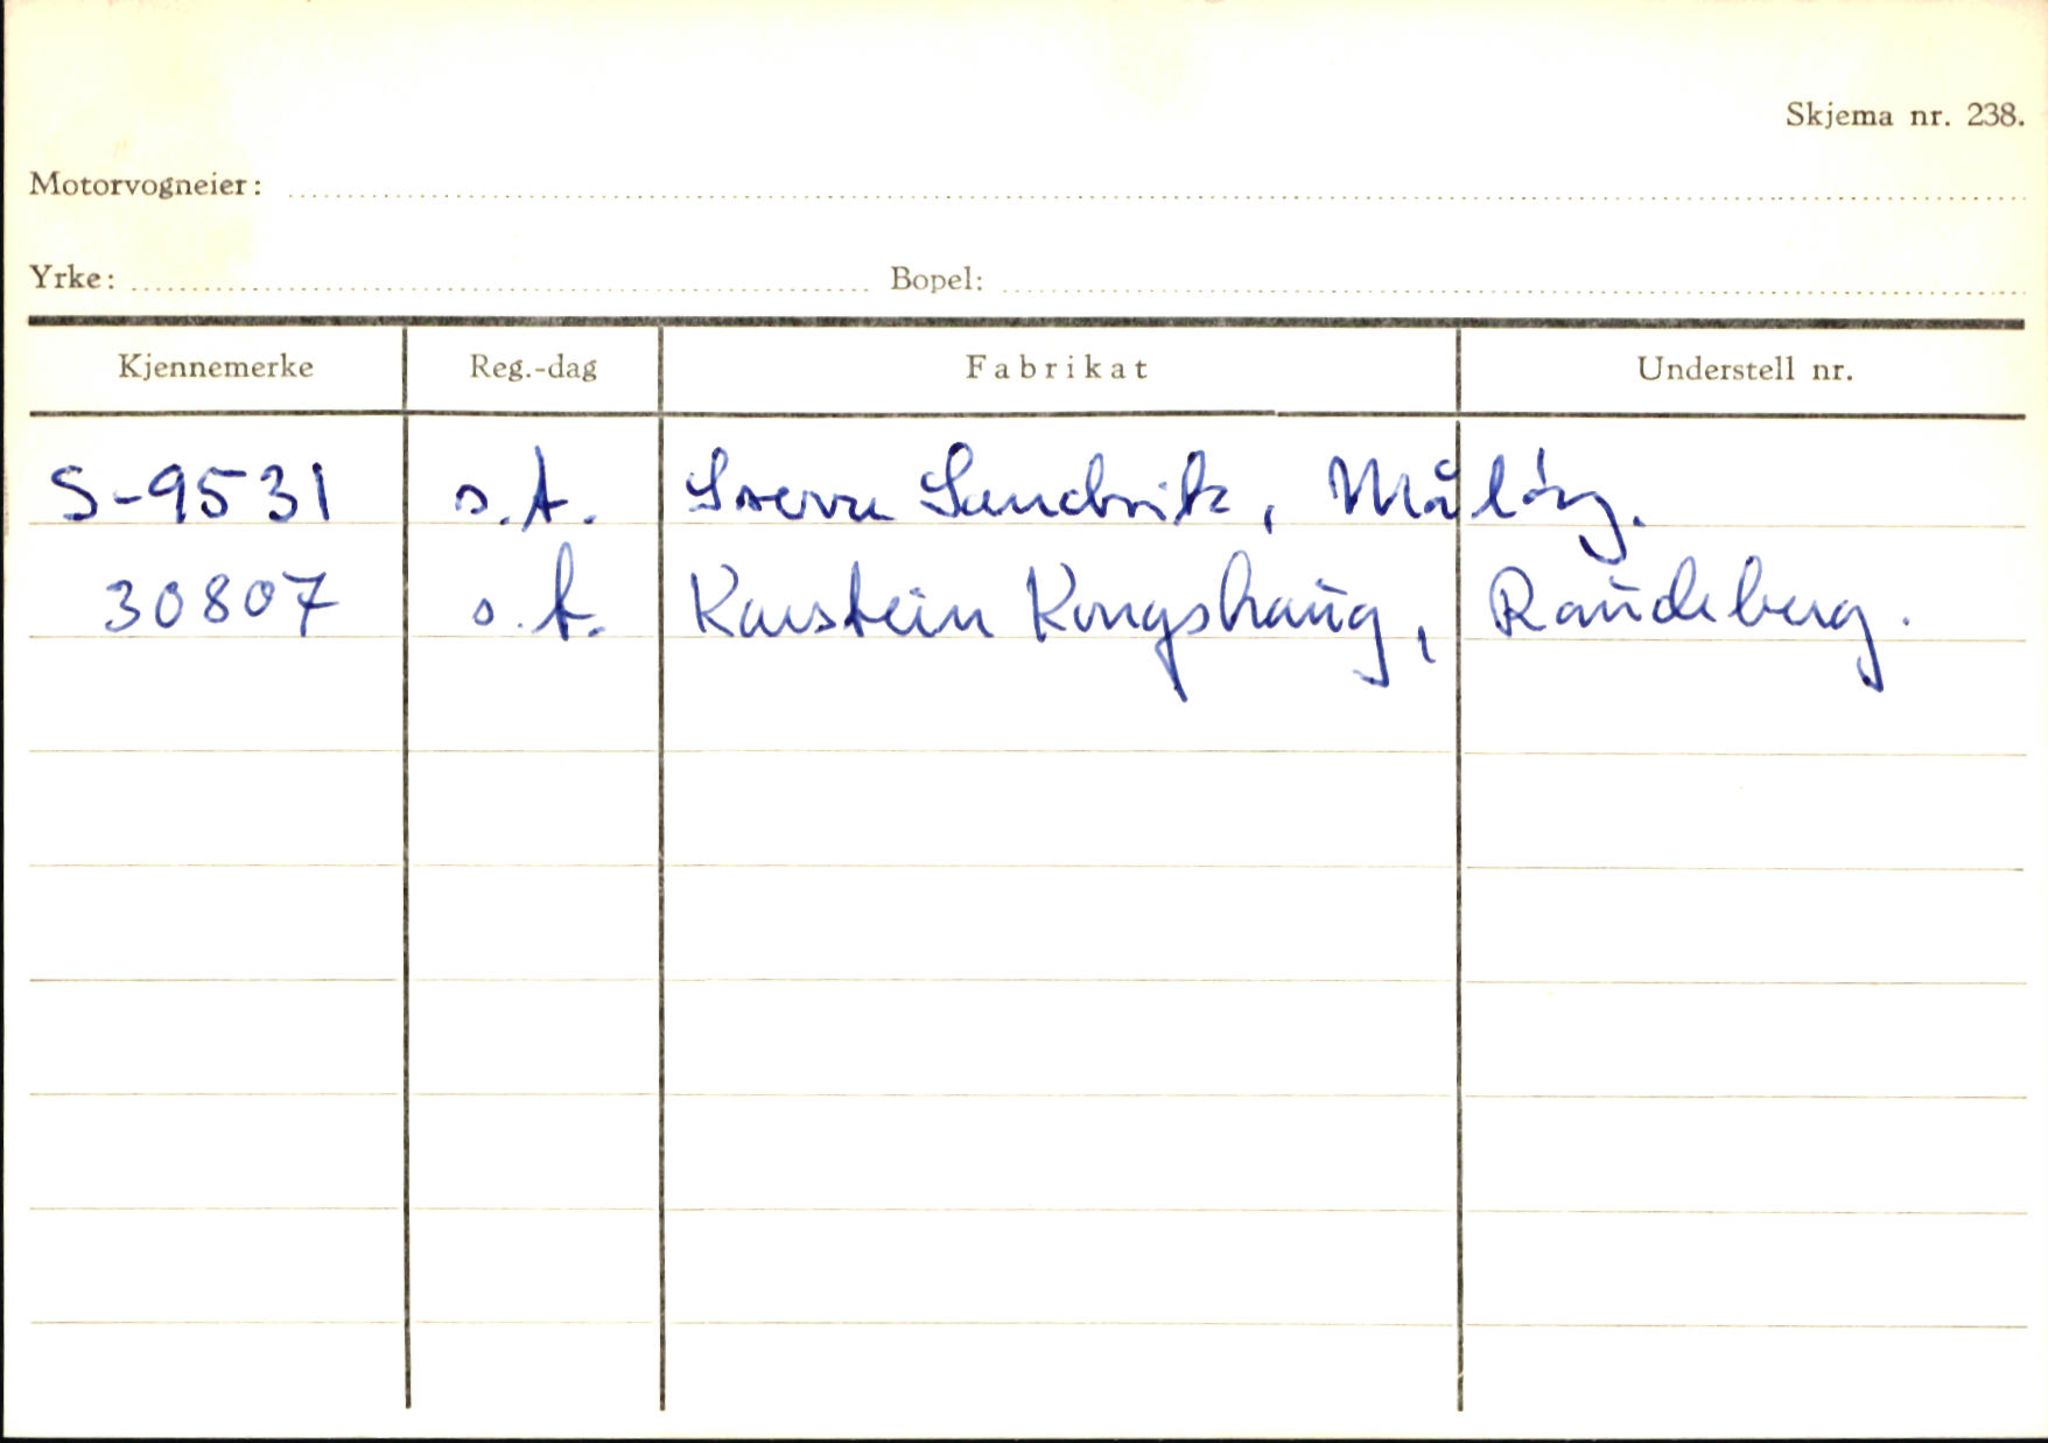 Skjema nr. 238.
Motorvogneier:
Yrke: Bopel:
Kjennemerke Reg.-dag Fabrikat Understell nr.
S-9531 s.t. Sverre Sandvik, Måløy.
30807 s.t. Karstein Kongshaug, Raudeberg.